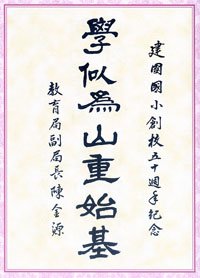 建國國小創校五十週年紀念
學似為山重始基
教育局副局長陳金源